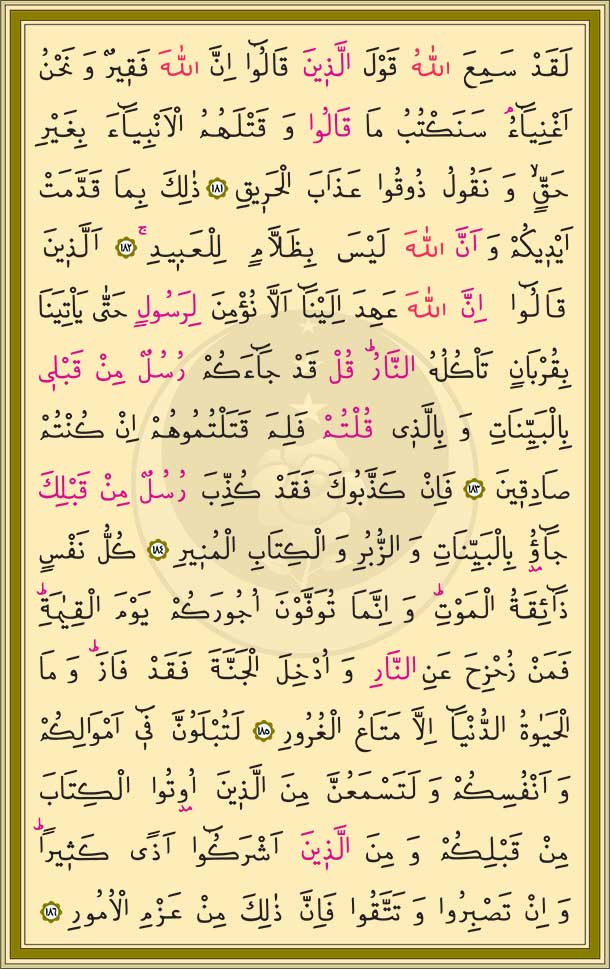 لَقَدْ سَمِعَ اللّٰهُ قَوْلَ الَّذٖينَ قَالُٓوا اِنَّ اللّٰهَ فَقٖيرٌ وَ نَحْنُ
اَغْنِيَٓاءُۘ سَنَكْتُبُ مَا قَالُوا وَ قَتْلَهُمُ الْاَنْبِيَٓاءَ بِغَيْرِ
حَقٍّۙ وَ نَقُولُ ذُوقُوا عَذَابَ الْحَرٖيقِ ١٨١ ذٰلِكَ بِمَا قَدَّمَتْ
اَيْدٖيكُمْ وَ اَنَّ اللّٰهَ لَيْسَ بِظَلَّامٍ لِلْعَبٖيدِۚ ١٨٢ اَلَّذٖينَ
قَالُٓوا اِنَّ اللّٰهَ عَهِدَ اِلَيْنَٓا اَلَّا نُؤْمِنَ لِرَسُولٍ حَتّٰى يَاْتِيَنَا
بِقُرْبَانٍ تَاْكُلُهُ النَّارُۜ قُلْ قَدْ جَٓاءَكُمْ رُسُلٌ مِنْ قَبْلٖى
بِالْبَيِّنَاتِ وَ بِالَّذٖى قُلْتُمْ فَلِمَ قَتَلْتُمُوهُمْ اِنْ كُنْتُمْ
صَادِقٖينَ ١٨٣ فَاِنْ كَذَّبُوكَ فَقَدْ كُذِّبَ رُسُلٌ مِنْ قَبْلِكَ
جَٓاؤُ۫ بِالْبَيِّنَاتِ وَ الزُّبُرِ وَ الْكِتَابِ الْمُنٖيرِ ١٨٤ كُلُّ نَفْسٍ
ذَٓائِقَةُ الْمَوْتِۜ وَ اِنَّمَا تُوَفَّوْنَ اُجُورَكُمْ يَوْمَ الْقِيٰمَةِۜ
فَمَنْ زُحْزِحَ عَنِ النَّارِ وَ اُدْخِلَ الْجَنَّةَ فَقَدْ فَازَۜ وَ مَا
الْحَيٰوةُ الدُّنْيَٓا اِلَّا مَتَاعُ الْغُرُورِ ١٨٥ لَتُبْلَوُنَّ فٖٓى اَمْوَالِكُمْ
وَ اَنْفُسِكُمْ وَ لَتَسْمَعُنَّ مِنَ الَّذٖينَ اُو۫تُوا الْكِتَابَ
مِنْ قَبْلِكُمْ وَ مِنَ الَّذٖينَ اَشْرَكُٓوا اَذًى كَثٖيراًۜ
وَ اِنْ تَصْبِرُوا وَ تَتَّقُوا فَاِنَّ ذٰلِكَ مِنْ عَزْمِ الْاُمُورِ ١٨٦